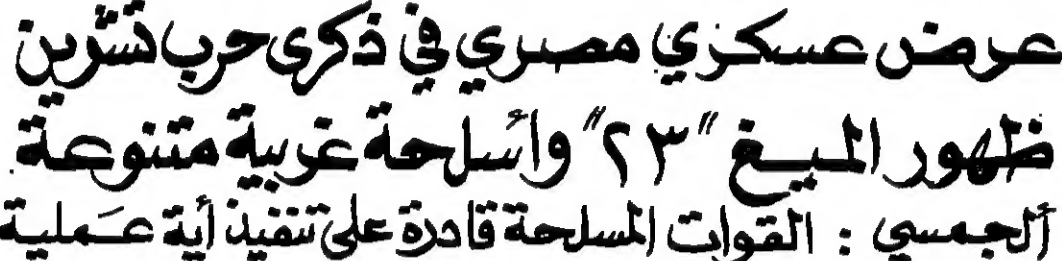 عرض عسكري مصري في ذكرى حرب تشرين
ظهور الميغ "٢٣" وأسلحة غربية متنوعة
ألجمسي : القوات المسلحة قادرة على تنفيذ أية عملية